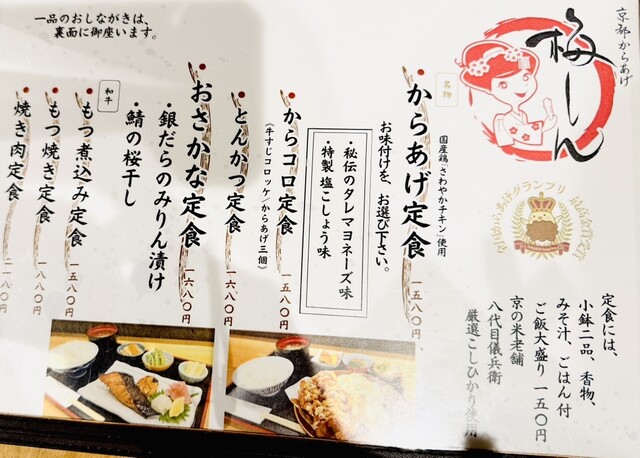 京都からあげ
梅しん
からあげグランプリ
最高金賞受賞
定食には、
小鉢二品、香物、
みそ汁、ごはん付
ご飯大盛り 一五〇円
京の米老舗
八代目儀兵衛
厳選こしひかり使用
名物
国産鶏「さわやかチキン」使用
からあげ定食
一五八〇円
お味付けを、お選び下さい。
・秘伝のタレマヨネーズ味
・特製 塩こしょう味
からコロ定食
一五八〇円
《牛すじコロッケ/からあげ三個》
とんかつ定食
一六八〇円
おさかな定食
一六八〇円
・銀だらのみりん漬け
・鯖の桜干し
和牛
もつ煮込み定食
一五八〇円
もつ焼き定食
一六八〇円
焼き肉定食
二一八〇円
一品のおしながきは、
裏面に御座います。